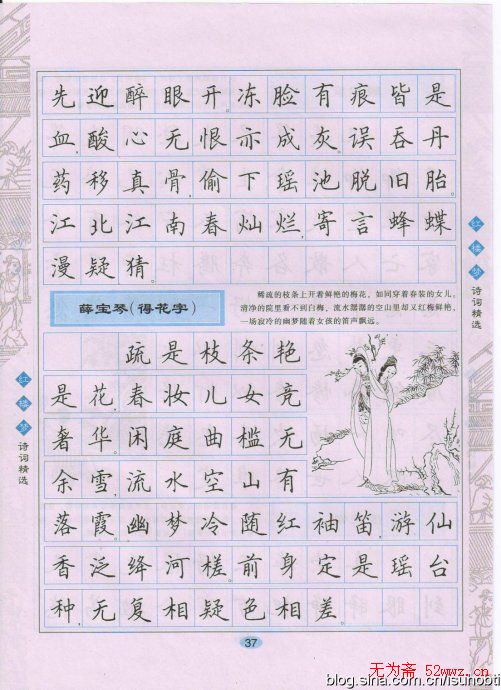 先迎醉眼开。冻脸有痕皆是
血,酸心无恨亦成灰。误吞丹
药移真骨,偷下瑶池脱旧胎。
江北江南春灿烂,寄言蜂蝶
漫疑猜。
薛宝琴(得花字)
稀疏的枝条上开着鲜艳的梅花,如同穿着春装的女儿,
清净的院里看不到白梅,流水潺潺的空山里却又红梅鲜艳,
一场寂冷的幽梦随着女孩的笛声飘远。
疏是枝条艳
是花,春妆儿女竞
奢华。闲庭曲槛无
余雪,流水空山有
落霞。幽梦冷随红袖笛,游仙
香泛绛河槎。前身定是瑶台
种,无复相疑色相差。
红楼梦
诗词精选
红楼梦
诗词精选
37
无为斋 52wwz.cn
blog.sina.com.cn/isuhobti